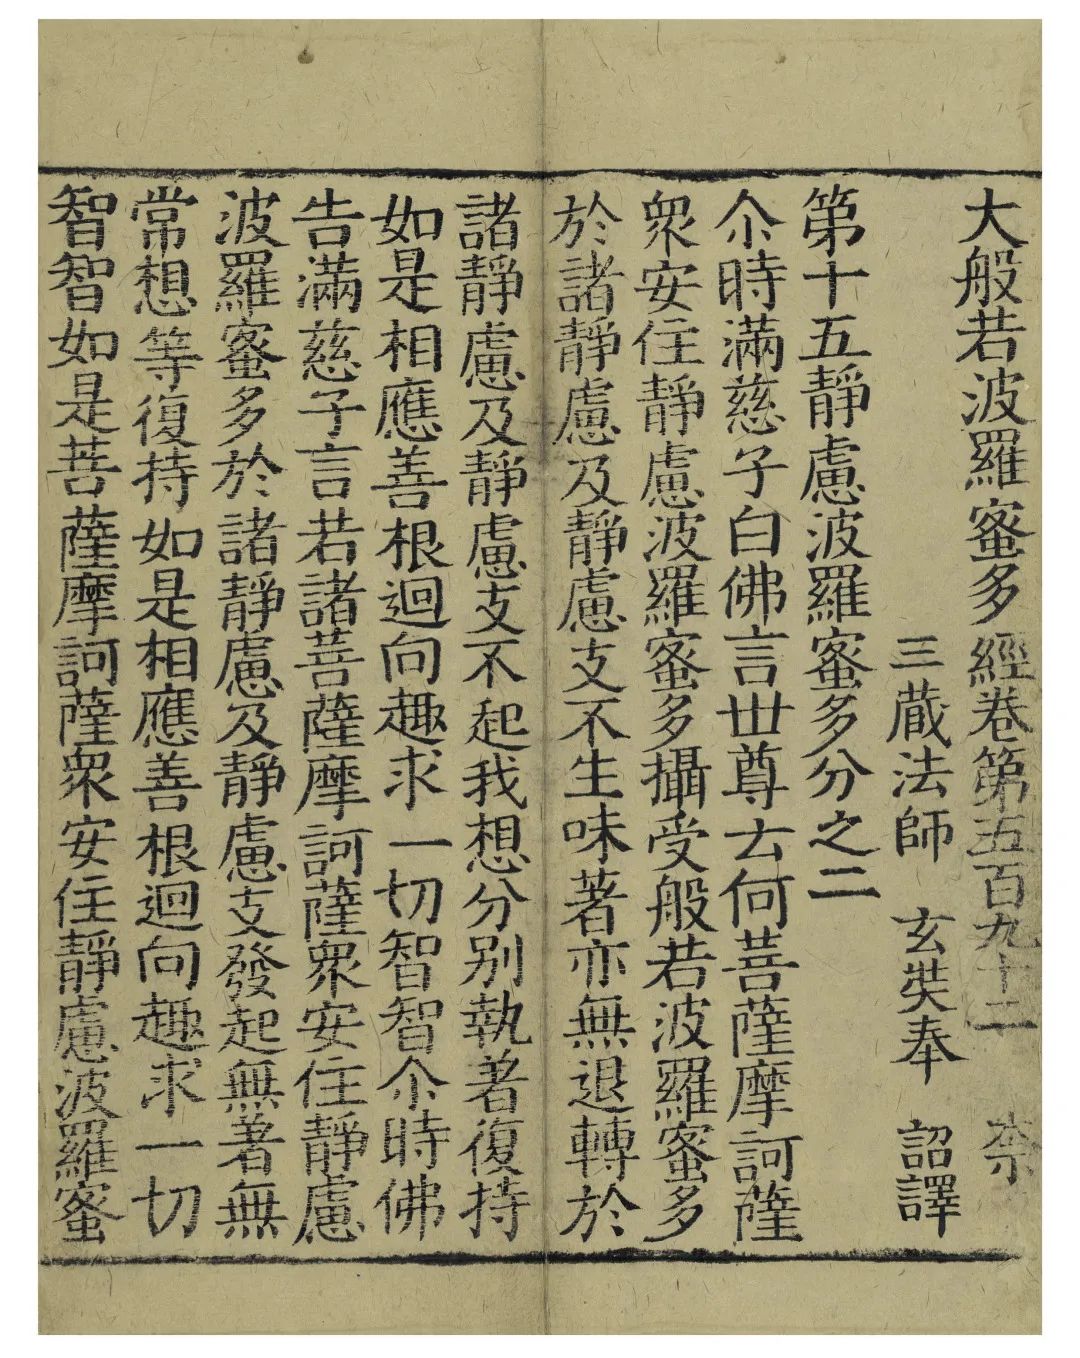 大般若波羅蜜多經卷第五百九十二 柰
三蔵法師 玄奘奉 詔譯
第十五靜慮波羅蜜多分之二
尒時滿慈子白佛言世尊云何菩薩摩訶薩
衆安住靜慮波羅蜜多攝受般若波羅蜜多
於諸靜慮及靜慮支不生味著亦無退轉於
諸靜慮及靜慮支不起我想分別執著復持
如是相應善根迴向趣求一切智智尒時佛
告滿慈子言若諸菩薩摩訶薩衆安住靜慮
波羅蜜多於諸靜慮及靜慮支發起無著無
常想等復持如是相應善根迴向趣求一切
智智如是菩薩摩訶薩衆安住靜慮波羅蜜